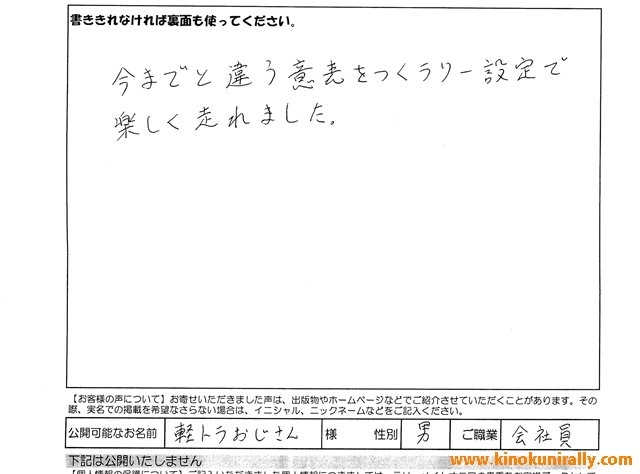 書ききれなければ裏面も使ってください。
今までと違う意表をつくラリー設定で
楽しく走れました。
【お客様の声について】お寄せいただきました声は、出版物やホームページなどでご紹介させていただくことがあります。その
際、実名での掲載を希望なさらない場合は、イニシャル、ニックネームなどをご記入ください。
公開可能なお名前 軽トラおじさん 様 性別 男 ご職業 会社員
下記は公開いたしません
www.kinokunirally.com